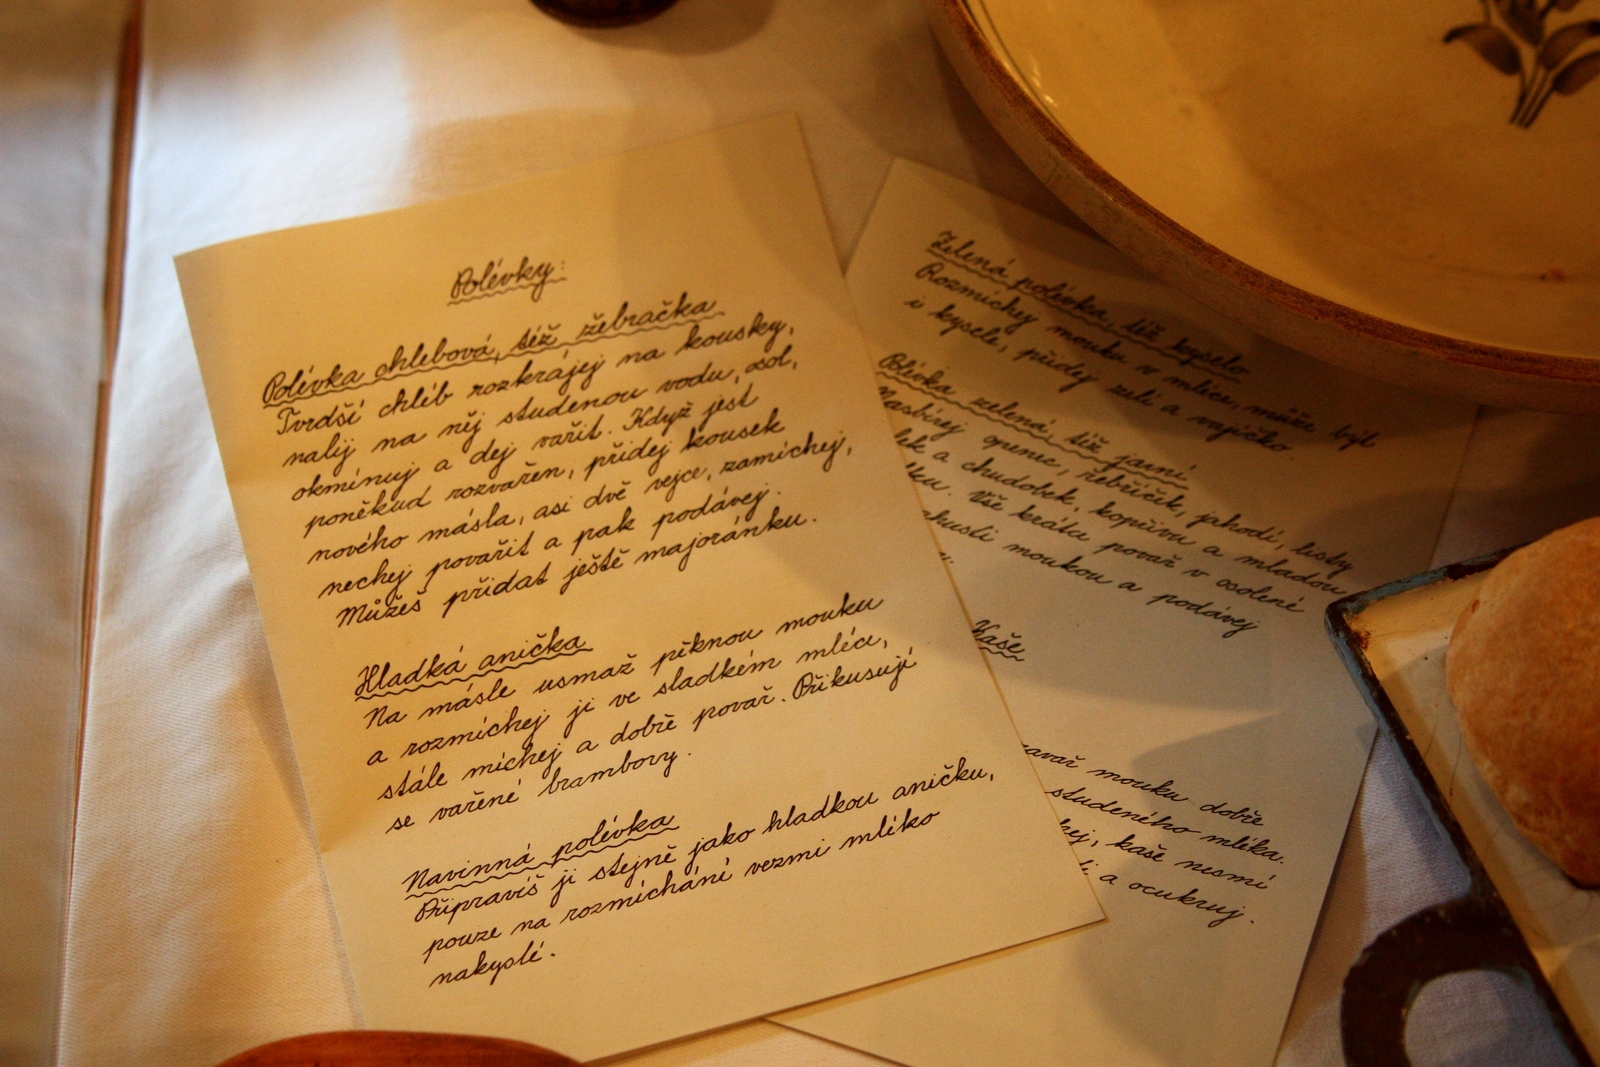 Polévky:
Polévka chlebová, též žebračka
Tvrdší chléb rozkrájej na kousky,
nalij na něj studenou vodu, osol,
okmínuj a dej vařit. Když jest
poněkud rozvařen, přidej kousek
nového másla, asi dvě vejce, zamíchej,
nechej povařit a pak podávej.
Můžeš přidat ještě majoránku.
Hladká anička
Na másle usmaž pěknou mouku
a rozmíchej ji ve sladkém mléce,
stále míchej a dobře povař. Přikusují
se vařené brambory.
Navinná polévka
Připravíš ji stejně jako hladkou aničku,
pouze na rozmíchání vezmi mléko
nakyslé.
Zelená polévka, též kyselo
Rozmíchej mouku v mléce, může být
i kyselé, přidej zelí a vajíčko.
Polévka zelená, též jarní
Nasbírej openec, řebříčík, jahodí, listy
a chudobek, kopřivu a mladou
Vše krátce povař v osolené
moukou a podávej
Kaše
mouku dobře
studeného mléka.
kaše nesmí
a ocukruj.